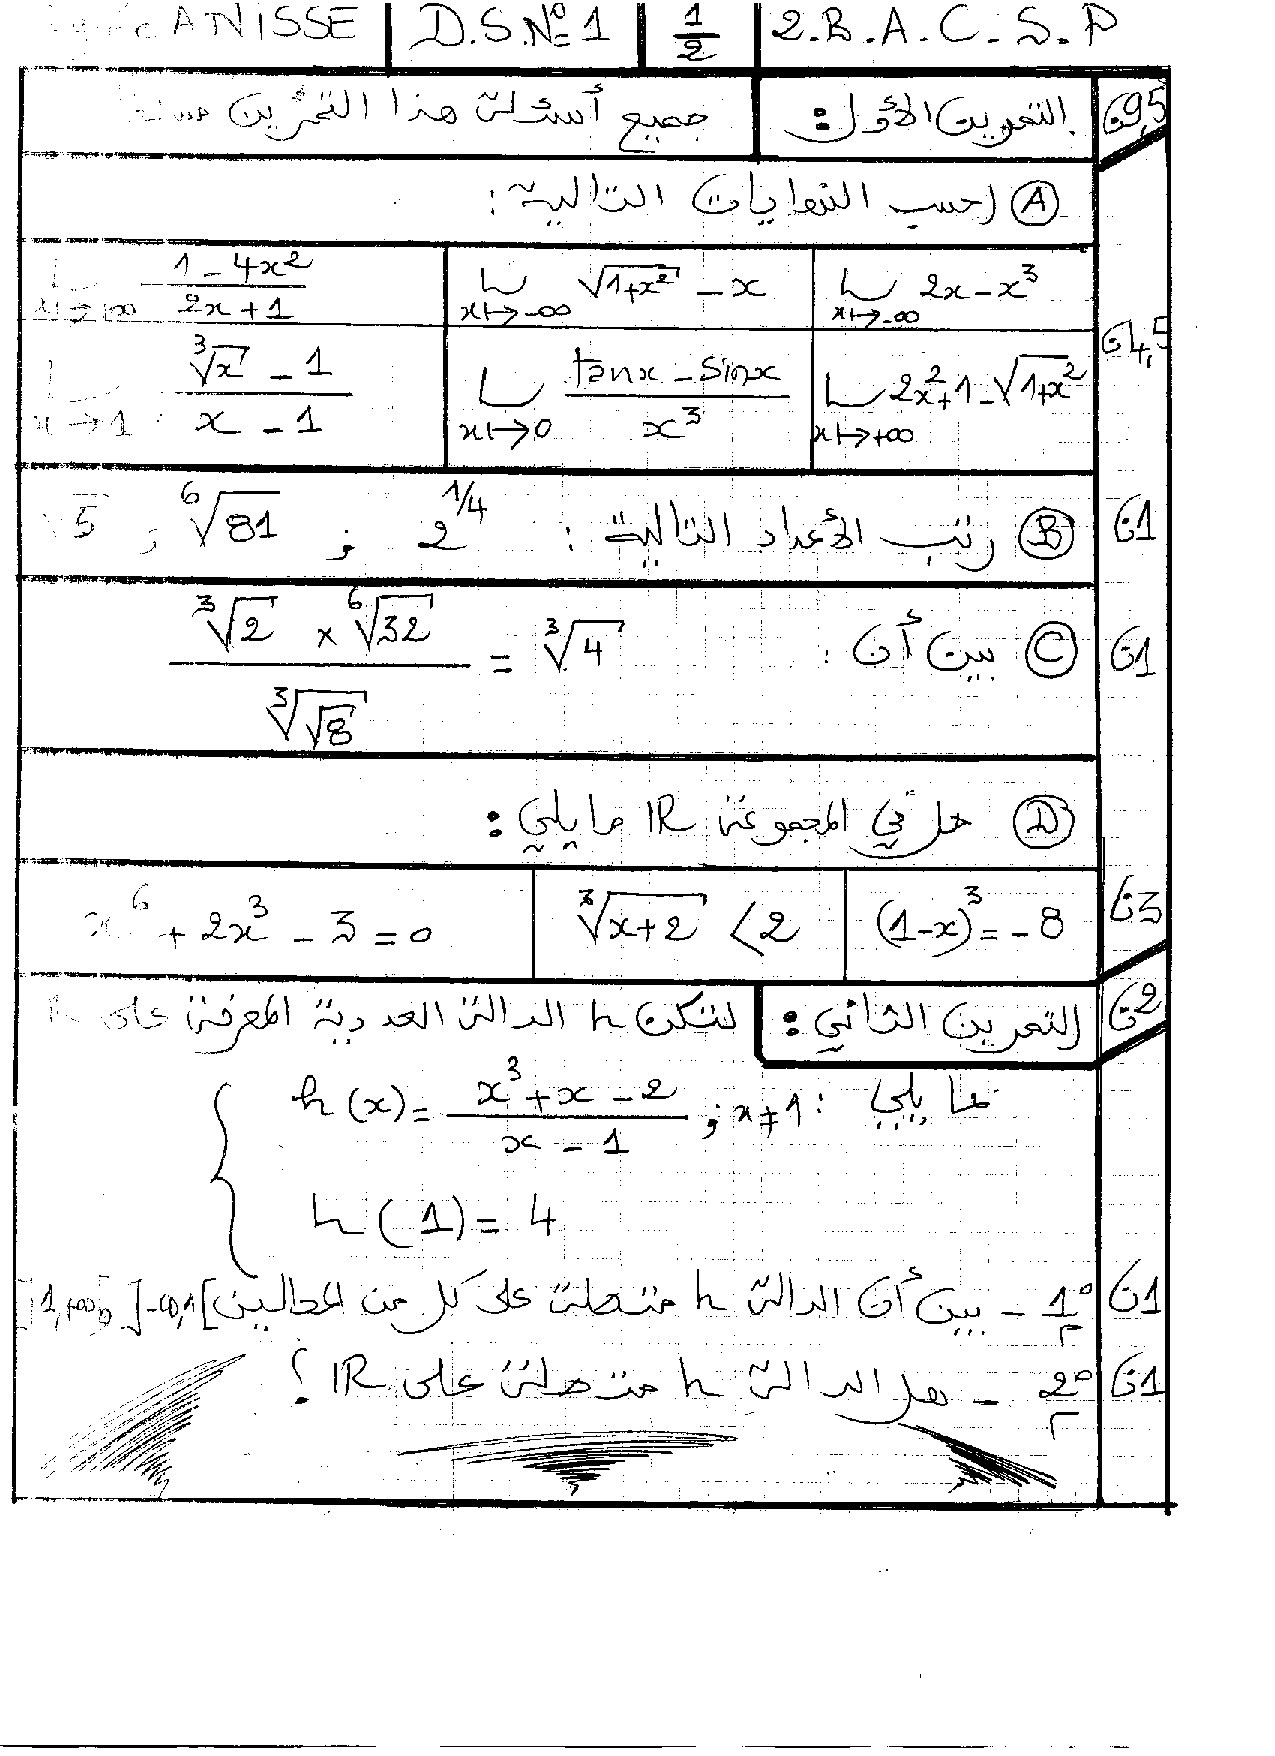 ANISSE D.S.N°=1 1/2 2.B.A.C-S.P
التمرين الأول: جميع أسئلة هذا التمرين ن9,5
(A) احسب النهايات التالية:
lim 2x-x³ x↦-∞ lim √(1+x²) - x x↦-∞ (1-4x²)/(2x+1)
lim 2x²+1-√(1+x²) x↦+∞ lim (tanx - sinx)/x³ x↦0 (³√x - 1)/(x - 1) x→1 ن4,5
(B) رتب الأعداد التالية: 2^(1/4) ; ⁶√81 ; √5 ن1
(C) بين أن: (³√2 × ⁶√32)/(³√(√8)) = ³√4 ن1
(D) حل في المجموعة IR ما يلي:
(1-x)³ = -8 ³√(x+2) < 2 x⁶ + 2x³ - 3 = 0 ن3
التمرين الثاني: لتكن h الدالة العددية المعرفة على ن2
بما يلي: h(x) = (x³+x-2)/(x-1) ; x≠1
h(1) = 4
1° - بين أن الدالة h متصلة على كل من المجالين ]-∞,1[ ]1,+∞[ ن1
2° - هل الدالة h متصلة على IR ؟ ن1